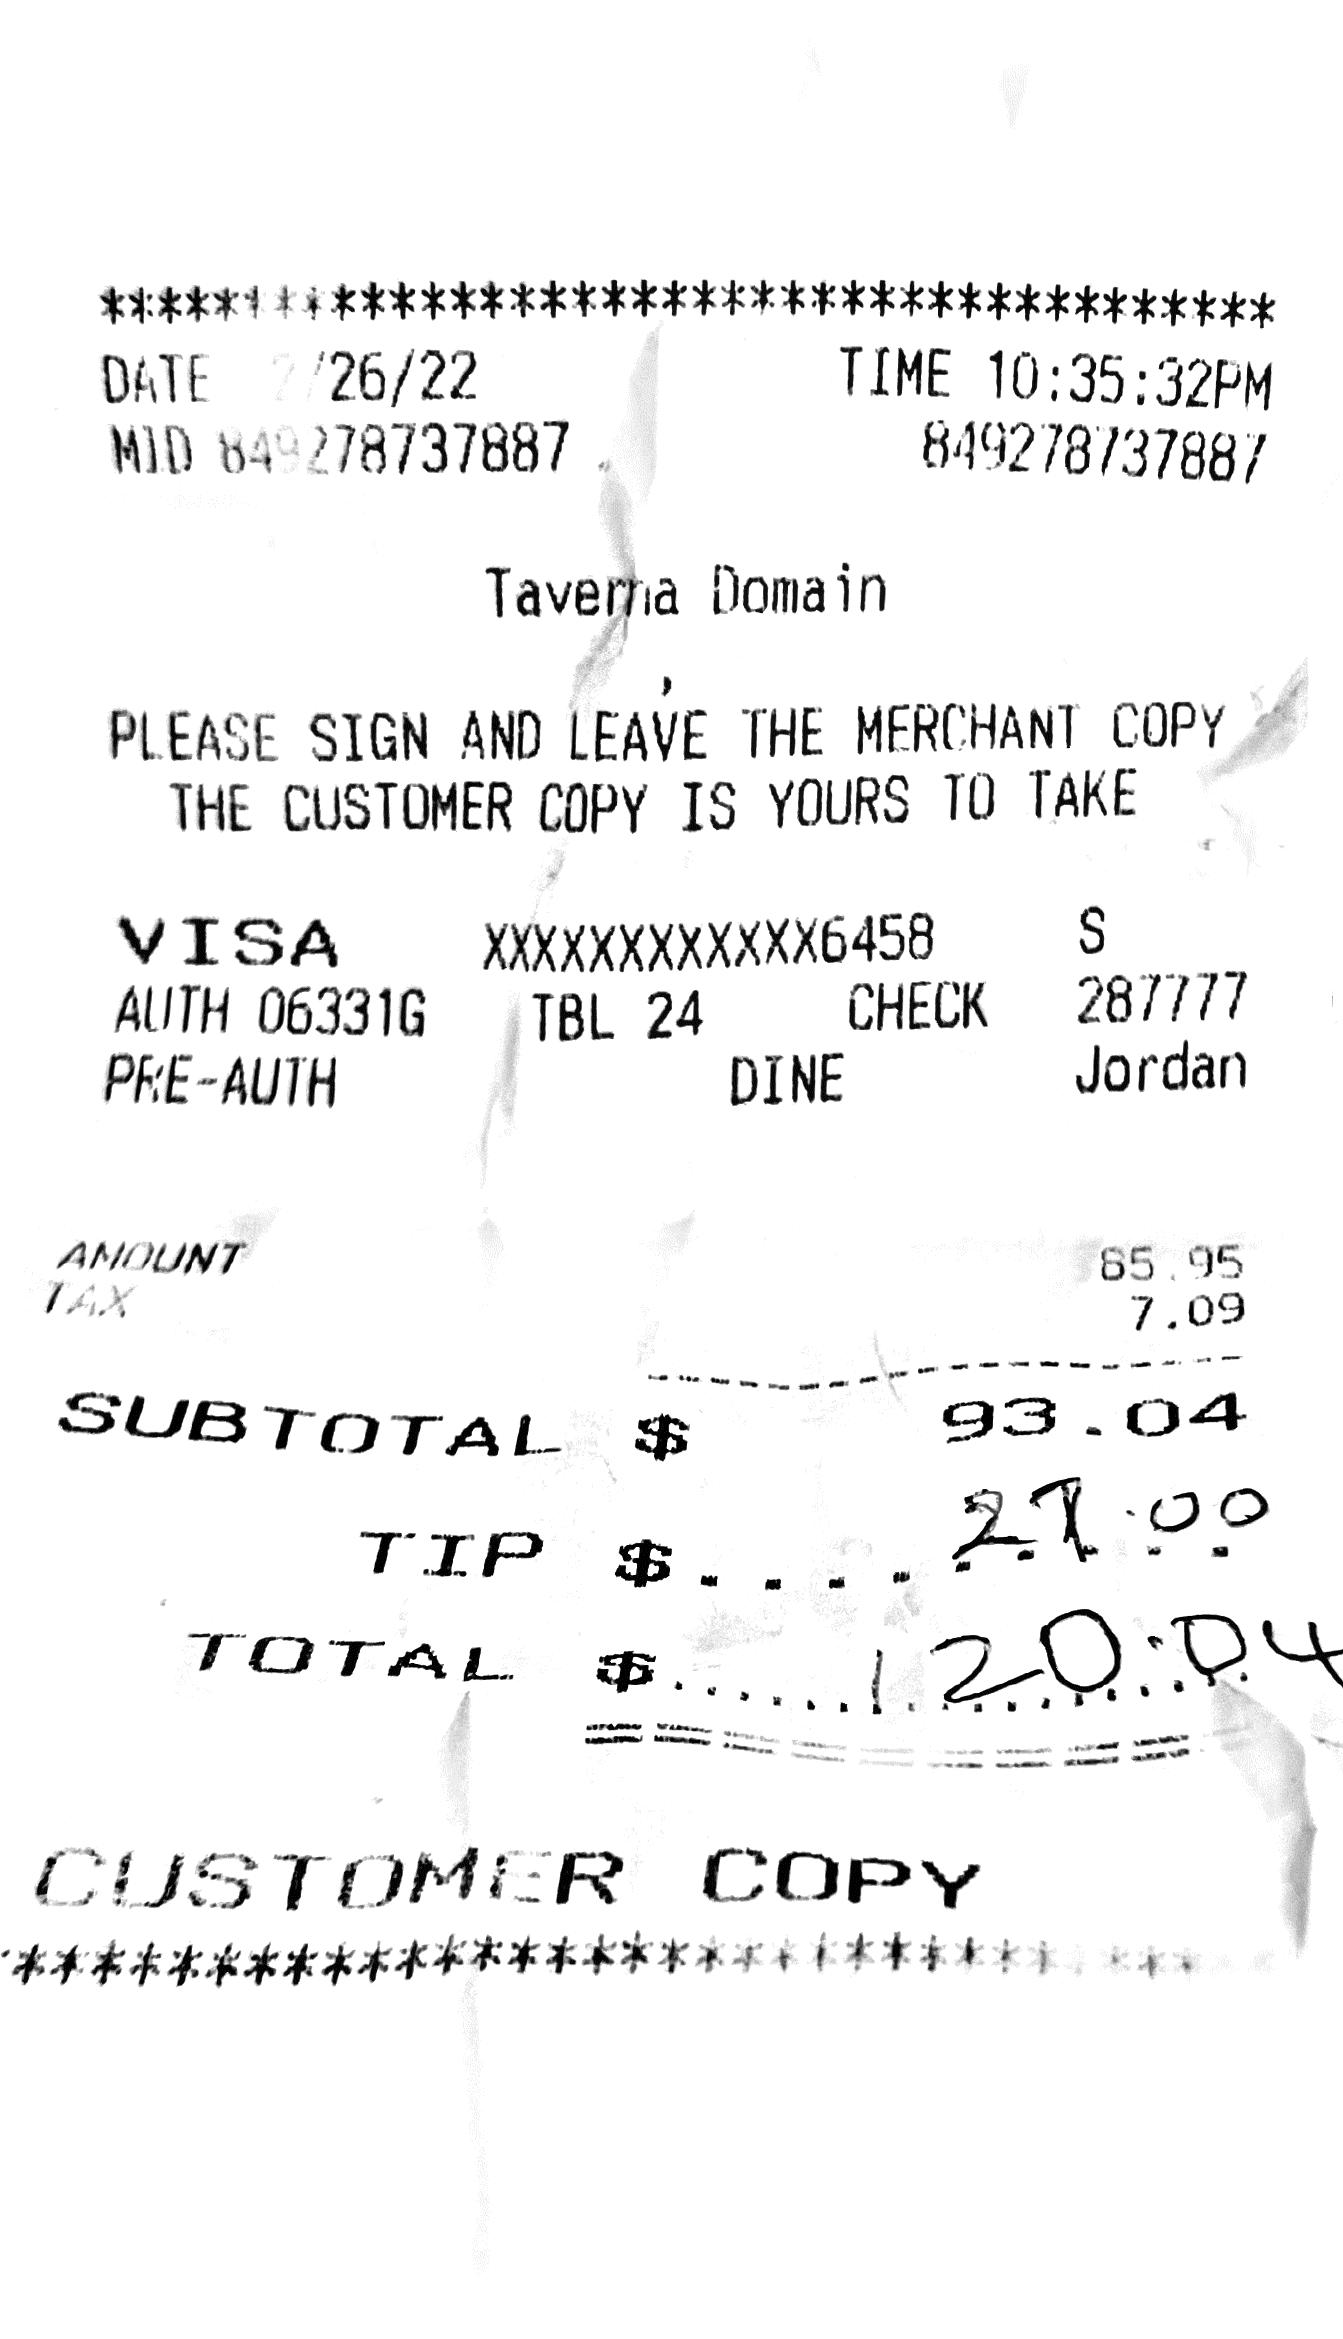 ****************************************
DATE 2/26/22 TIME 10:35:32PM
MID 849278737887 849278737887
Taverna Domain
PLEASE SIGN AND LEAVE THE MERCHANT COPY
THE CUSTOMER COPY IS YOURS TO TAKE
VISA XXXXXXXXXXXX6458 S
AUTH 06331G TBL 24 CHECK 287777
PRE-AUTH DINE Jordan
AMOUNT 85.95
TAX 7.09
SUBTOTAL $ 93.04
TIP $ 27.00
TOTAL $ 120.04
CUSTOMER COPY
********************************